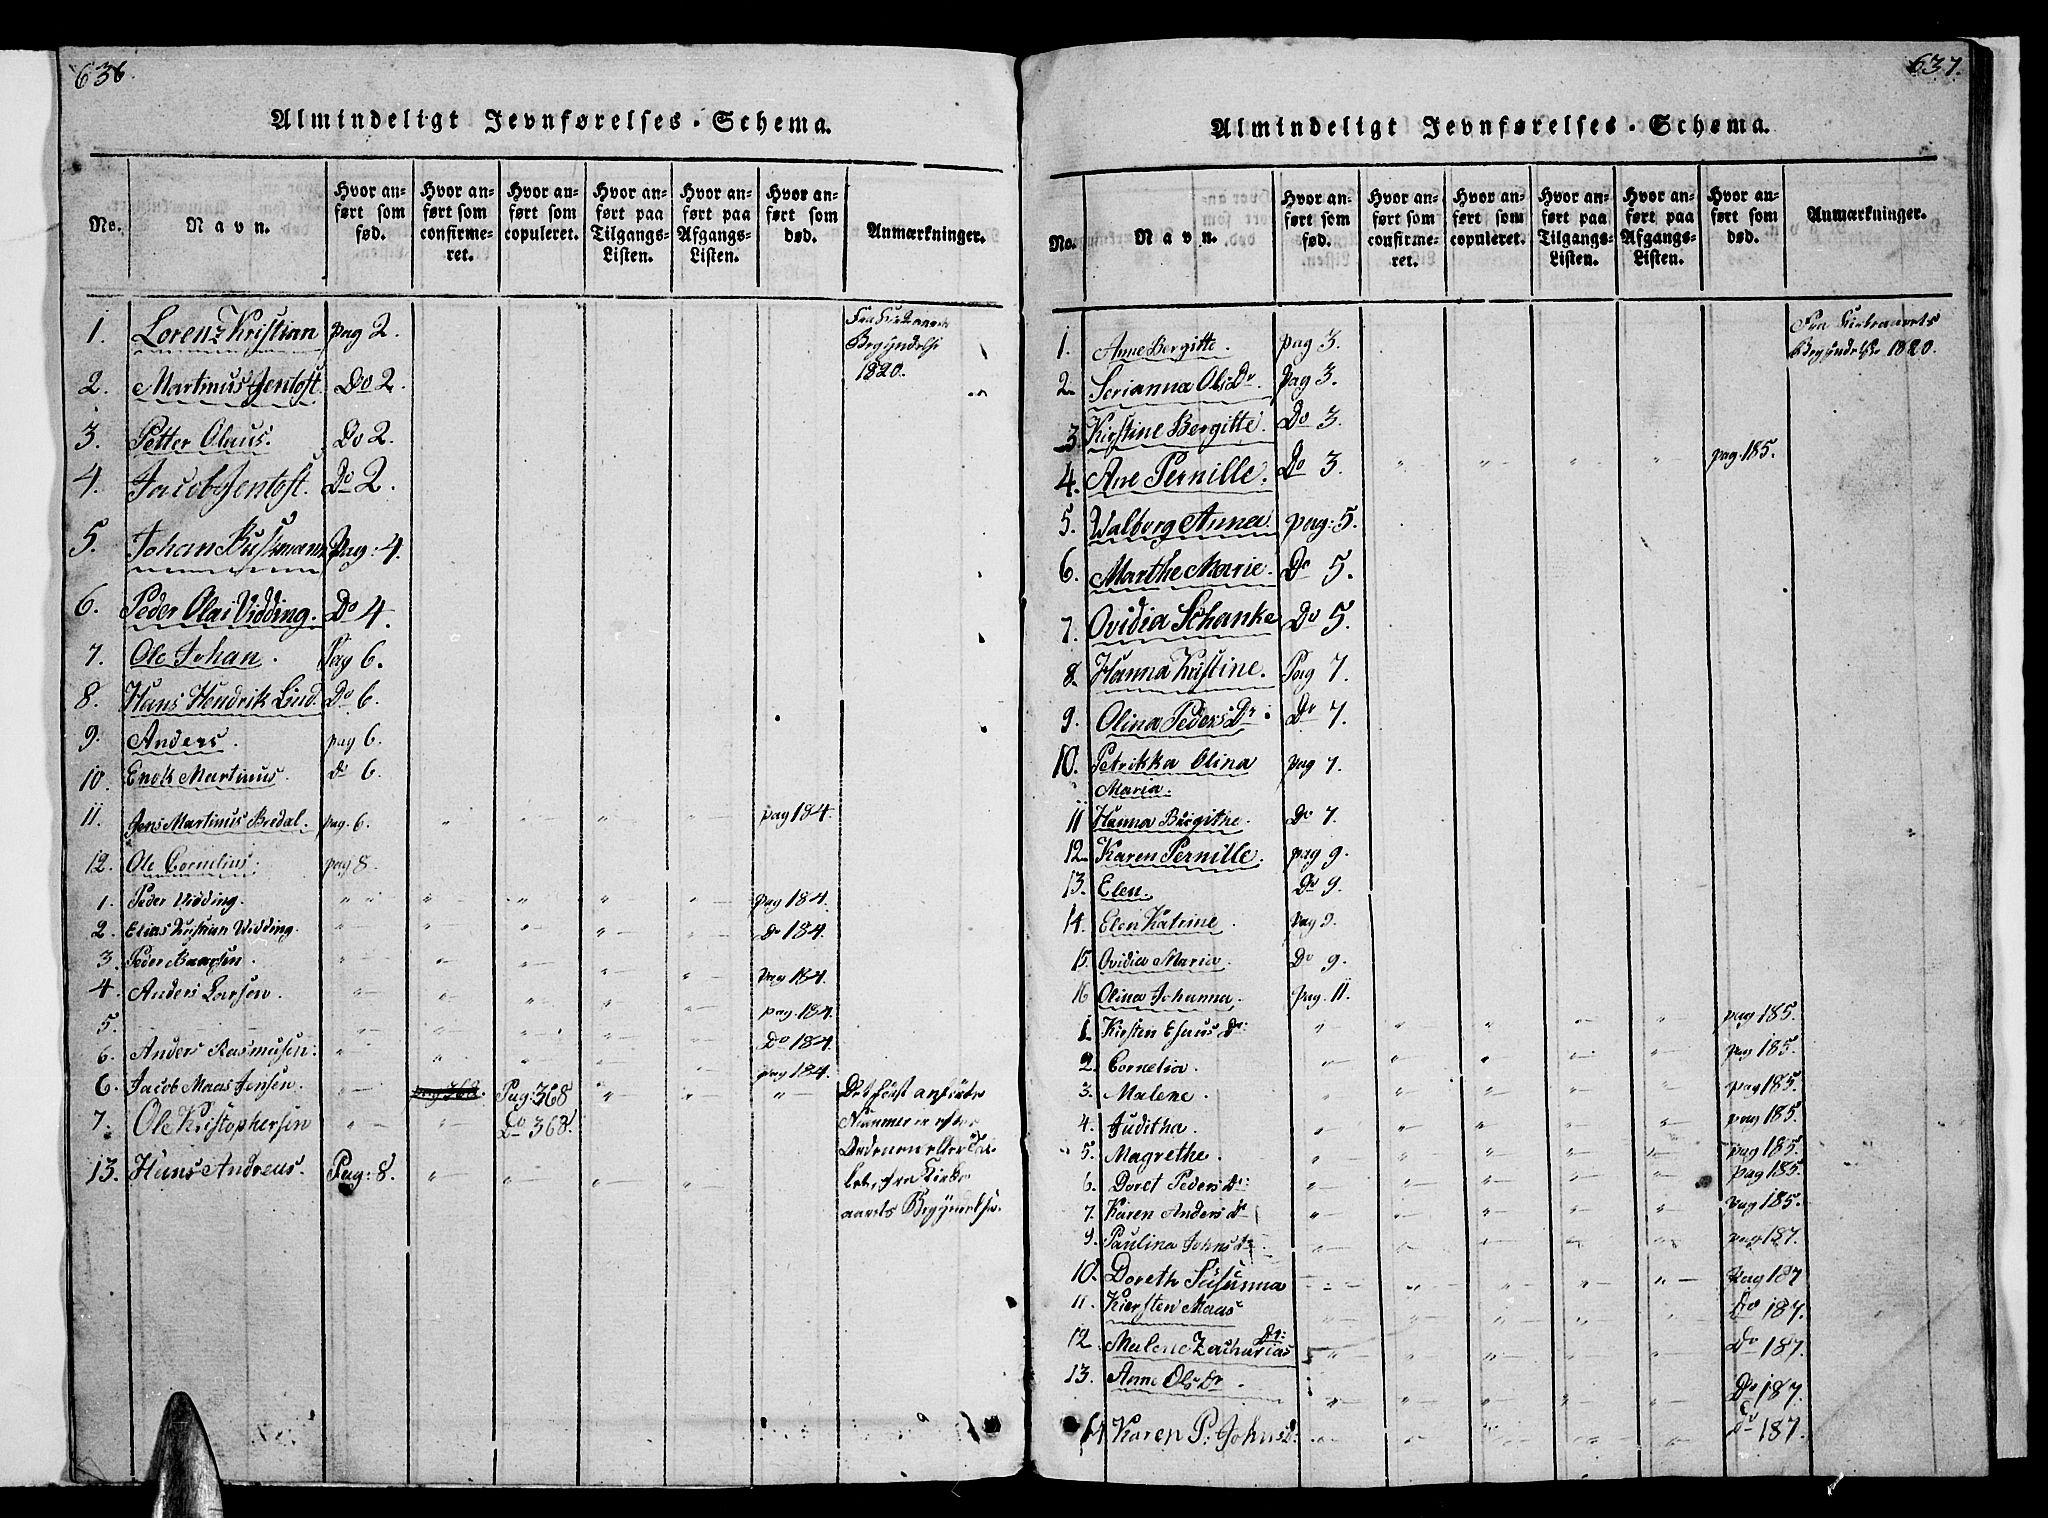 636.
Almindeligt Jevnførelses-Schema.
No. Navn. Hvor anført som fød. Hvor anført som confirmeret. Hvor anført som copuleret. Hvor anført paa Tilgangs-Listen. Hvor anført paa Afgangs-Listen. Hvor anført som død. Anmærkninger.
1. Lorenz Kristian pag 2. Fra Kirkeaarets
Begyndelse
1820.
2. Martinus Jentoft. Do 2.
3. Petter Olaus. Do 2.
4. Jacob Jentoft. Do 2.
5. Johan Buschmann Pag: 4.
6. Peder Olai Vidding. Do 4.
7. Ole Johan. Pag 6.
8. Hans Hendrik Lind. Do 6.
9. Anders. pag 6.
10. Enok Martinus. do 6.
11. Jens Martinus Bredal. pag. 6. " " " " pag 184.
12. Ole Cornelius. pag 8.
1. Peder Vidding. " " " " " pag 184.
2. Elias Kristian Vidding. " " " " " Do 184.
3. Peder Baarsen. " " " " " pag 184.
4. Anders Larsen. " " " " " pag. 184.
5. " " " " " Do 184.
6. Anders Rasmusen. " " " " " pag 184.
6. Jacob Maas Jensen. " pag 368. Pag: 368 " " " Det først anførte
7. Ole Kristophersen " " Do 368. Nummer er efter
13. Hans Andreas. Pag: 8. " " " "
fra Kirke
aarets Begyndelse.
637.
Almindeligt Jevnførelses-Schema.
No. Navn. Hvor anført som fød. Hvor anført som confirmeret. Hvor anført som copuleret. Hvor anført paa Tilgangs-Listen. Hvor anført paa Afgangs-Listen. Hvor anført som død. Anmærkninger.
1. Anne Bergitte. pag 3. Fra Kirkeaarets
Begyndelse 1820.
2. Serianna Ols Dr. Pag 3.
3. Kirstine Bergitte. Do 3.
4. Ane Pernille. Do 3. " " " " pag. 185.
5. Walborg Anna. pag: 5.
6. Marthe Marie. Do 5.
7. Ovidia Schanke Do 5.
8. Hanna Kristine. Pag 7.
9. Olina Peders Dr. Do 7.
10. Petrikka Olina pag 7.
Maria.
11 Hanna Birgithe. Do 7.
12. Karen Pernille. pag 9.
13. Elen. Do 9.
14. Elen Katrine. pag 9.
15. Ovidia Maria. Do 9.
16 Olina Johanna. pag. 11.
1. Kirsten Esaus Dr: " " " " " pag 185.
2. Cornelia. " " " " " pag 185.
3. Malene. " " " " " pag 185.
4. Juditha. " " " " " pag 185.
5. Magrethe. " " " " " pag 185.
6. Doret Peders Dr: " " " " " pag 185.
7. Karen Anders Dr " " " " " pag 185.
9. Paulina Johns Dr. " " " " " pag 187.
10. Doreth Susanna " " " " " Pag 187
11. Kiersten Maas " " " " " Do 187.
12. Malene Zacharias Dr: " " " " " Do 187.
13. Anne Ols Dr. " " " " " Do 187.
14 Karen P: Johns D: " " " " " Do 187.